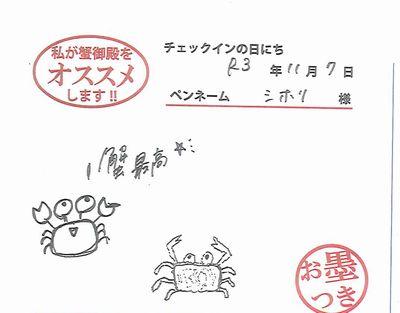 私が蟹御殿を
オススメ
します!!
チェックインの日にち
R3 年 11 月 7 日
ペンネーム シホリ 様
蟹最高
お墨
つき